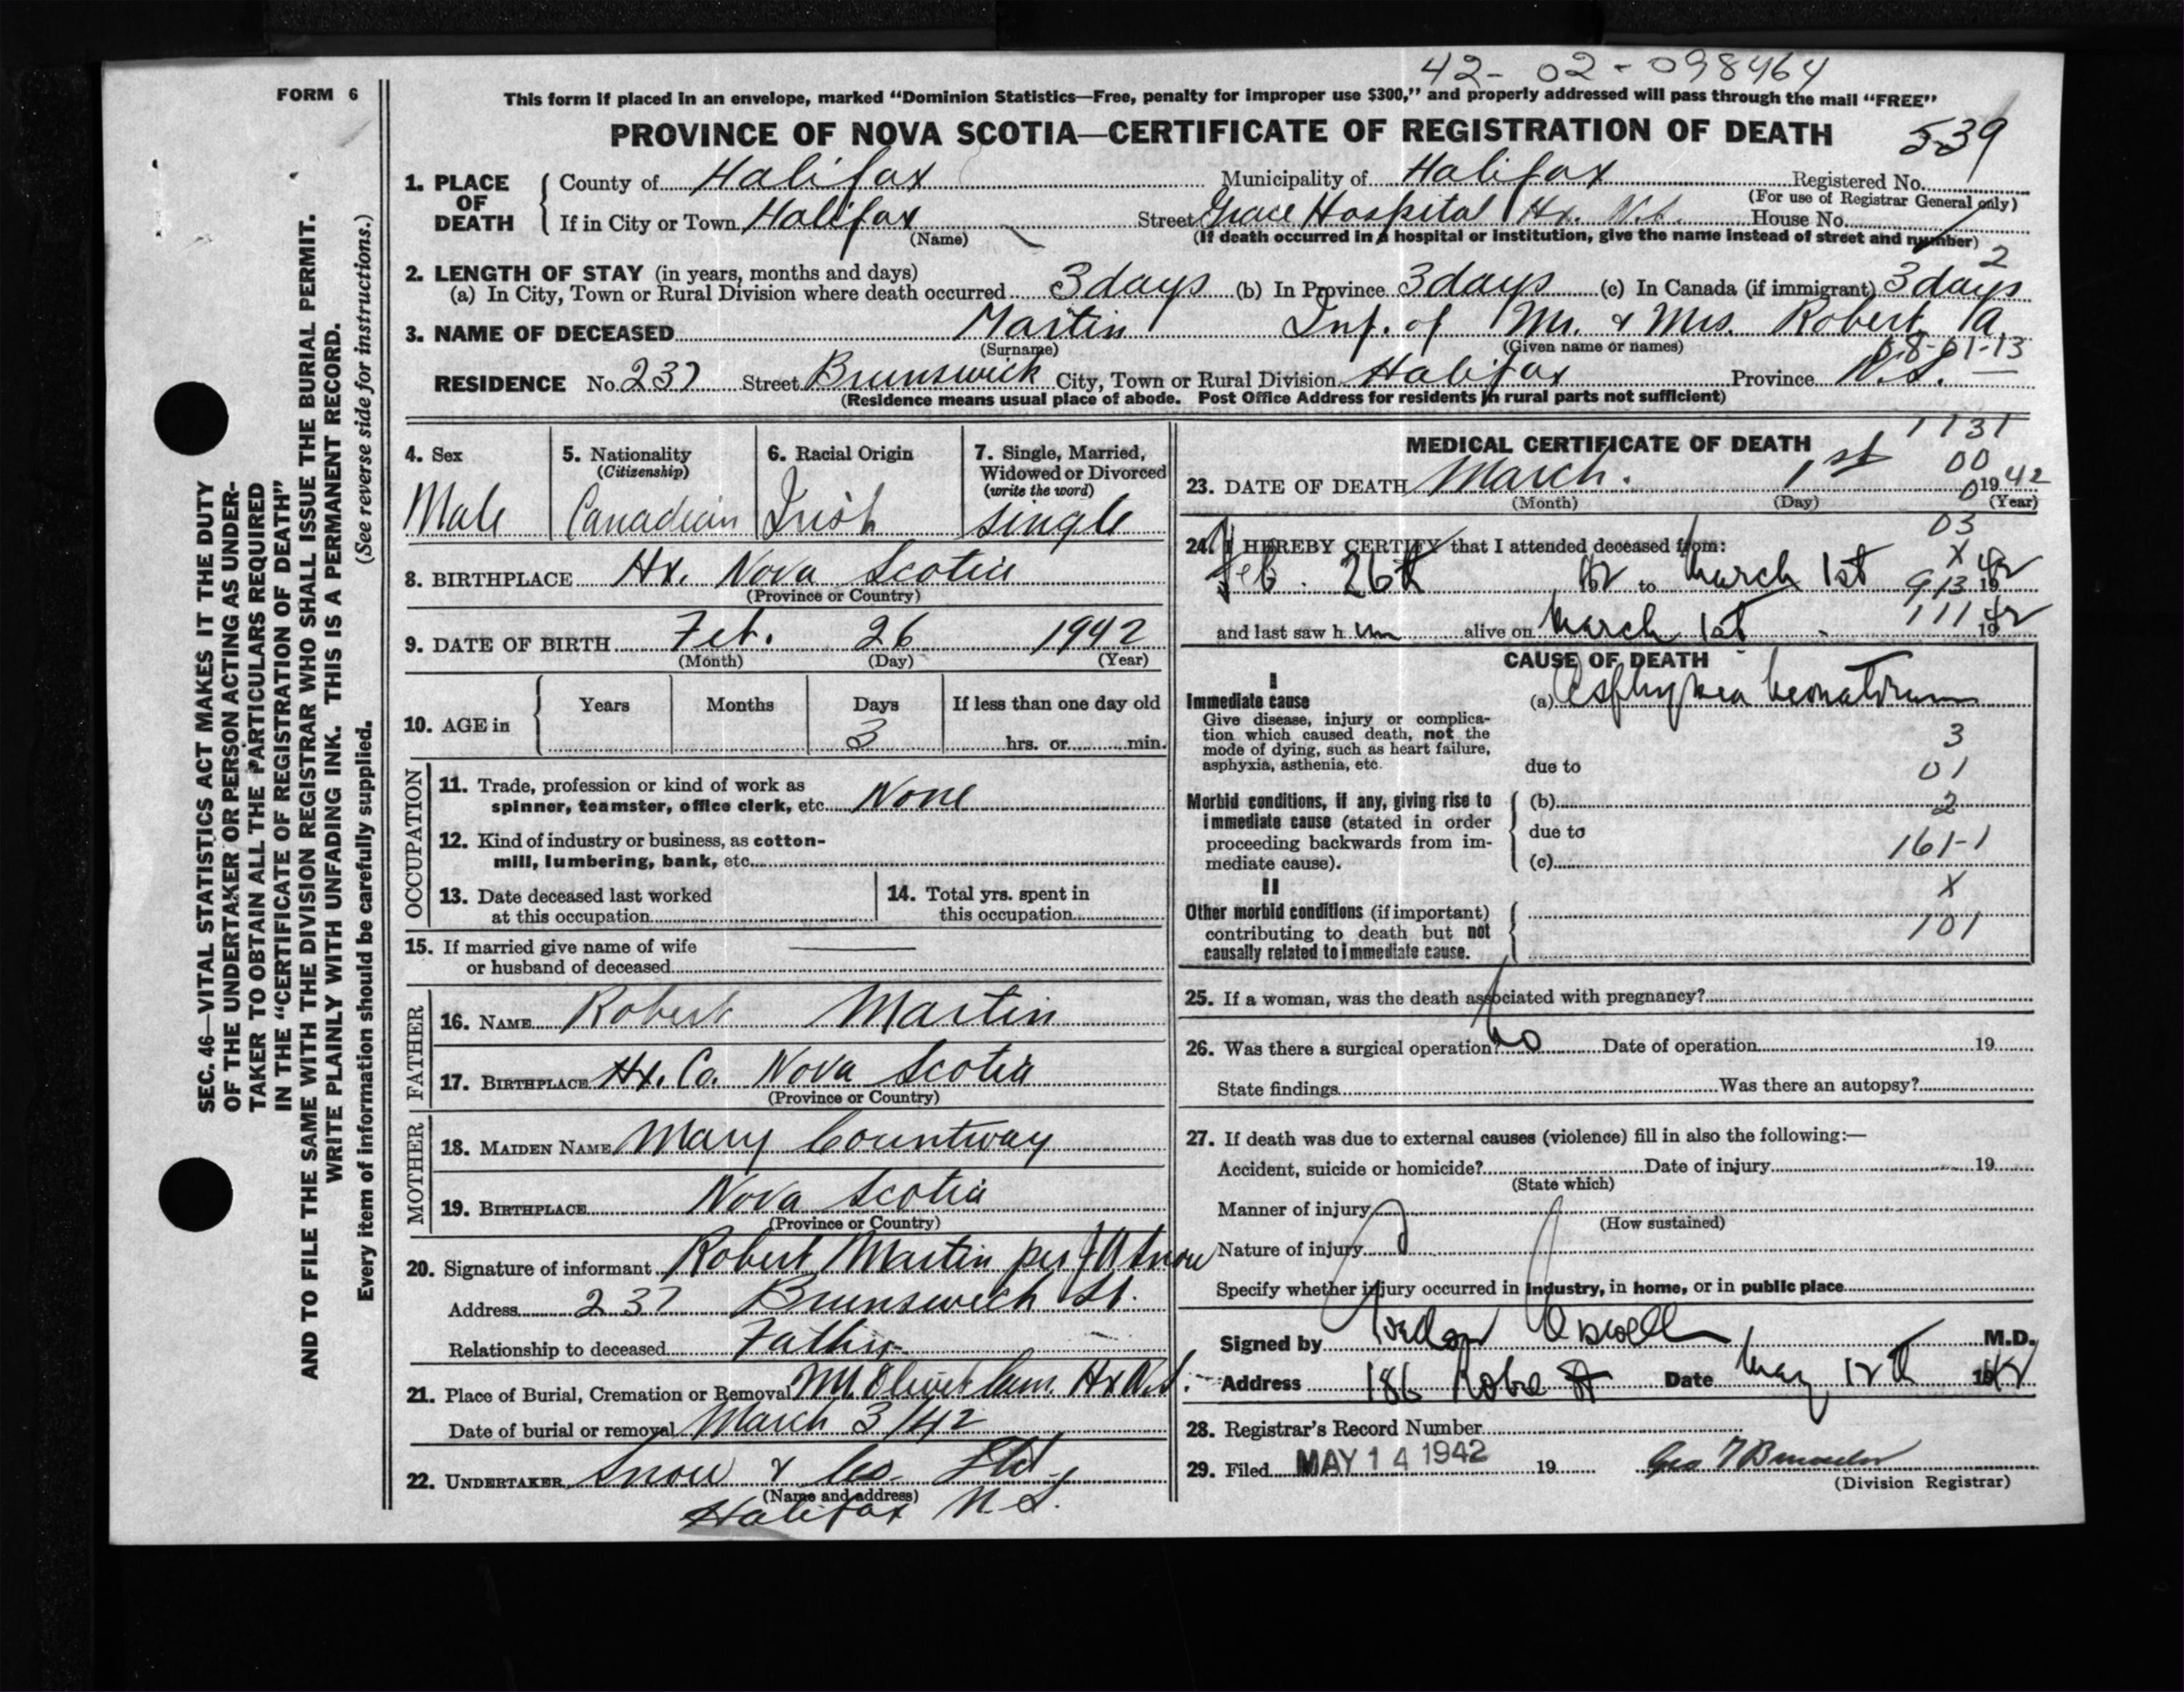 42-02-098464
FORM 6
This form if placed in an envelope, marked "Dominion Statistics—Free, penalty for improper use $300," and properly addressed will pass through the mail "FREE"
PROVINCE OF NOVA SCOTIA—CERTIFICATE OF REGISTRATION OF DEATH
539
1. PLACE OF DEATH
County of Halifax Municipality of Halifax Registered No.
(For use of Registrar General only)
If in City or Town Halifax Street Grace Hospital Hx. N.S. House No.
(Name) (If death occurred in a hospital or institution, give the name instead of street and number)
2
2. LENGTH OF STAY (in years, months and days)
(a) In City, Town or Rural Division where death occurred 3 days (b) In Province 3 days (c) In Canada (if immigrant) 3 days
3. NAME OF DECEASED Martin Inf. of Mr. & Mrs. Robert A.
(Surname) (Given name or names) 08-01-13
RESIDENCE No. 237 Street Brunswick City, Town or Rural Division Halifax Province N.S.
(Residence means usual place of abode. Post Office Address for residents in rural parts not sufficient)
4. Sex 5. Nationality (Citizenship) 6. Racial Origin 7. Single, Married, Widowed or Divorced (write the word)
Male Canadian Irish Single
8. BIRTHPLACE Hx. Nova Scotia
(Province or Country)
9. DATE OF BIRTH Feb. 26 1942
(Month) (Day) (Year)
10. AGE in Years Months Days If less than one day old
3 hrs. or min.
OCCUPATION
11. Trade, profession or kind of work as spinner, teamster, office clerk, etc. None
12. Kind of industry or business, as cotton-mill, lumbering, bank, etc.
13. Date deceased last worked at this occupation
14. Total yrs. spent in this occupation
15. If married give name of wife or husband of deceased
FATHER
16. NAME Robert Martin
17. BIRTHPLACE Hx. Co. Nova Scotia
(Province or Country)
MOTHER
18. MAIDEN NAME Mary Countway
19. BIRTHPLACE Nova Scotia
(Province or Country)
20. Signature of informant Robert Martin per J A Snow
Address 237 Brunswick St.
Relationship to deceased Father
21. Place of Burial, Cremation or Removal Mt. Olivet Cem. Hx N.S.
Date of burial or removal March 3/42
22. UNDERTAKER Snow & Co. Ltd.
(Name and address)
Halifax N.S.
MEDICAL CERTIFICATE OF DEATH
1131
00
23. DATE OF DEATH March. 1st 0 1942
(Month) (Day) (Year)
03
24. I HEREBY CERTIFY that I attended deceased from:
X
Feb. 26th 42 to March 1st 913 1942
111
and last saw him alive on March 1st 1942
CAUSE OF DEATH
I
Immediate cause
Give disease, injury or complication which caused death, not the mode of dying, such as heart failure, asphyxia, asthenia, etc.
(a) Asphyxia Neonatorum
3
due to 01
Morbid conditions, if any, giving rise to immediate cause (stated in order proceeding backwards from immediate cause).
(b) 2
due to
(c) 161-1
II
X
Other morbid conditions (if important) contributing to death but not causally related to immediate cause.
101
25. If a woman, was the death associated with pregnancy?
26. Was there a surgical operation? No Date of operation 19
State findings Was there an autopsy?
27. If death was due to external causes (violence) fill in also the following:—
Accident, suicide or homicide? Date of injury 19
(State which)
Manner of injury
(How sustained)
Nature of injury
Specify whether injury occurred in industry, in home, or in public place
Signed by M.D.
Address 186 Date May 12th 1942
28. Registrar's Record Number
29. Filed MAY 14 1942 19
(Division Registrar)
SEC. 46—VITAL STATISTICS ACT MAKES IT THE DUTY
OF THE UNDERTAKER OR PERSON ACTING AS UNDER-
TAKER TO OBTAIN ALL THE PARTICULARS REQUIRED
IN THE "CERTIFICATE OF REGISTRATION OF DEATH"
AND TO FILE THE SAME WITH THE DIVISION REGISTRAR WHO SHALL ISSUE THE BURIAL PERMIT.
WRITE PLAINLY WITH UNFADING INK. THIS IS A PERMANENT RECORD.
Every item of information should be carefully supplied. (See reverse side for instructions.)